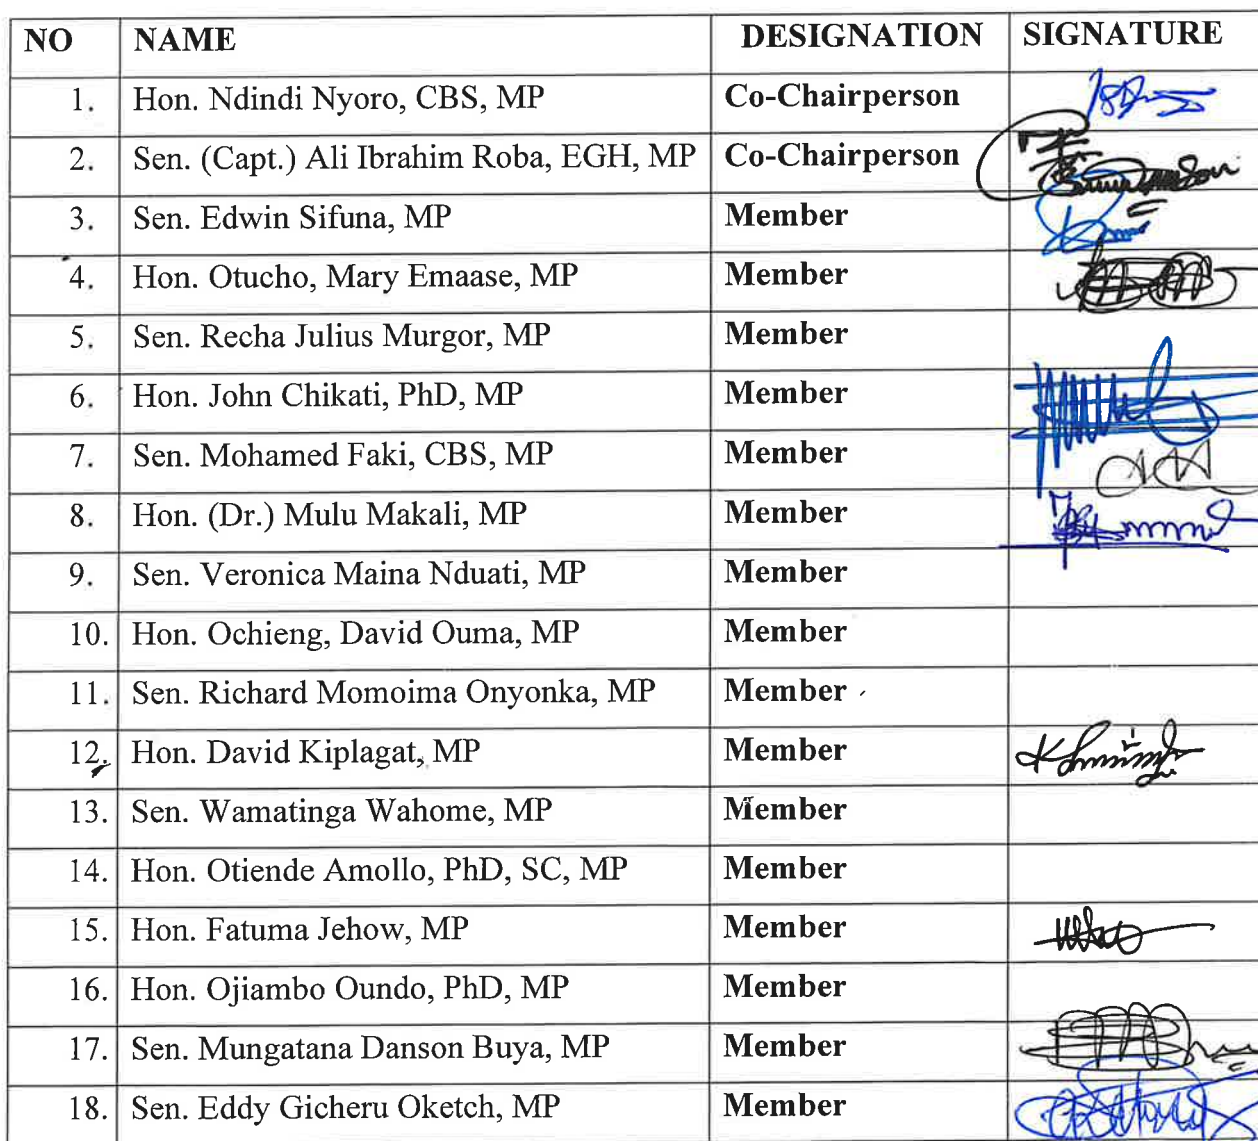 NO NAME DESIGNATION SIGNATURE
1. Hon. Ndindi Nyoro, CBS, MP Co-Chairperson
2. Sen. (Capt.) Ali Ibrahim Roba, EGH, MP Co-Chairperson
3. Sen. Edwin Sifuna, MP Member
4. Hon. Otucho, Mary Emaase, MP Member
5. Sen. Recha Julius Murgor, MP Member
6. Hon. John Chikati, PhD, MP Member
7. Sen. Mohamed Faki, CBS, MP Member
8. Hon. (Dr.) Mulu Makali, MP Member
9. Sen. Veronica Maina Nduati, MP Member
10. Hon. Ochieng, David Ouma, MP Member
11. Sen. Richard Momoima Onyonka, MP Member
12. Hon. David Kiplagat, MP Member
13. Sen. Wamatinga Wahome, MP Member
14. Hon. Otiende Amollo, PhD, SC, MP Member
15. Hon. Fatuma Jehow, MP Member
16. Hon. Ojiambo Oundo, PhD, MP Member
17. Sen. Mungatana Danson Buya, MP Member
18. Sen. Eddy Gicheru Oketch, MP Member